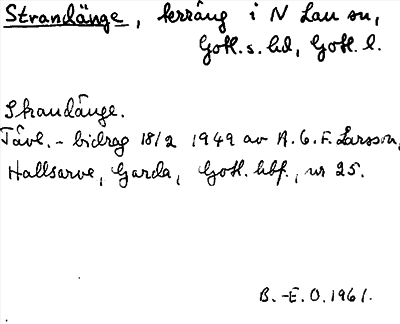 Strandänge, terräng i N Lau sn,
Gotl. s. hd, Gotl. l.
Strandänge.
Tävl.-bidrag 18/2 1949 av A. G. F. Larsson,
Hallsarve, Garda, Gotl. hbf., nr 25.
B.-E. O. 1961.